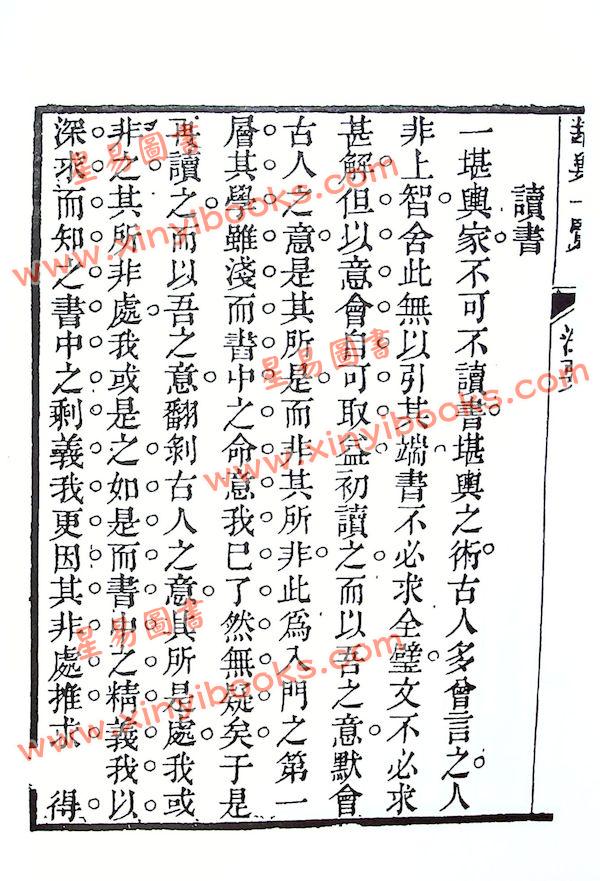 讀書
一堪輿家不可不讀書堪輿之術古人多曾言之人
非上智舍此無以引其端書不必求全璧文不必求
甚解但以意會自可取益初讀之而以吾之意默會
古人之意是其所是而非其所非此爲入門之第一
層其學雖淺而書中之命意我已了然無疑矣于是
再讀之而以吾之意翻剝古人之意其所是處我或
非之其所非處我或是之如是而書中之精義我以
深求而知之書中之剩義我更因其非處推求 得
星易圖書
www.xinyibooks.com
星易圖書
www.xinyibooks.com
星易圖書
www.xinyibooks.com